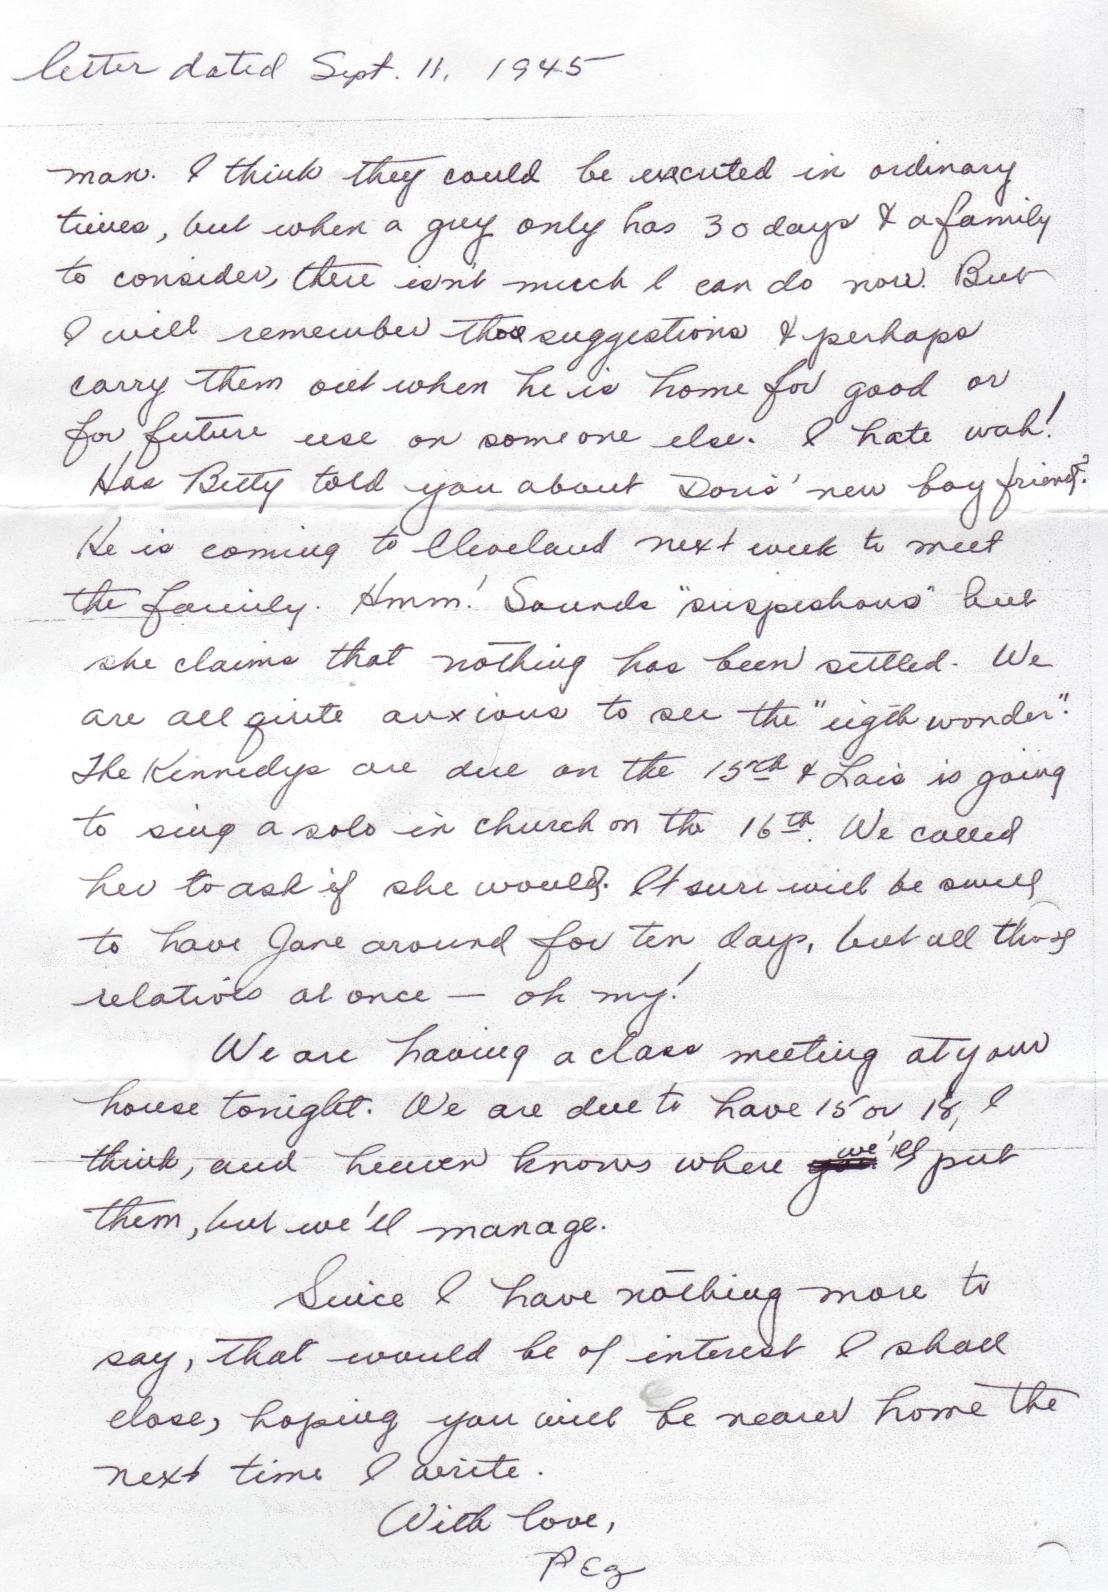 letter dated Sept. 11, 1945
man. I think they could be excuted in ordinary
times, but when a guy only has 30 days & a family
to consider, there isn't much I can do now. But
I will remember those suggestions & perhaps
carry them out when he is home for good or
for future use on someone else. I hate wah!
Has Betty told you about Doris' new boy friend?
He is coming to Cleveland next week to meet
the family. Hmm! Sounds "suspishous" but
she claims that nothing has been settled. We
are all quite anxious to see the "eigth wonder".
The Kennedys are due on the 15th & Lois is going
to sing a solo in church on the 16th. We called
her to ask if she would. It sure will be swell
to have Jane around for ten days, but all those
relatives at once — oh my!
We are having a class meeting at your
house tonight. We are due to have 15 or 18, I
think, and heaven knows where we'll put
them, but we'll manage.
Since I have nothing more to
say, that would be of interest I shall
close, hoping you will be nearer home the
next time I write.
With love,
PEg